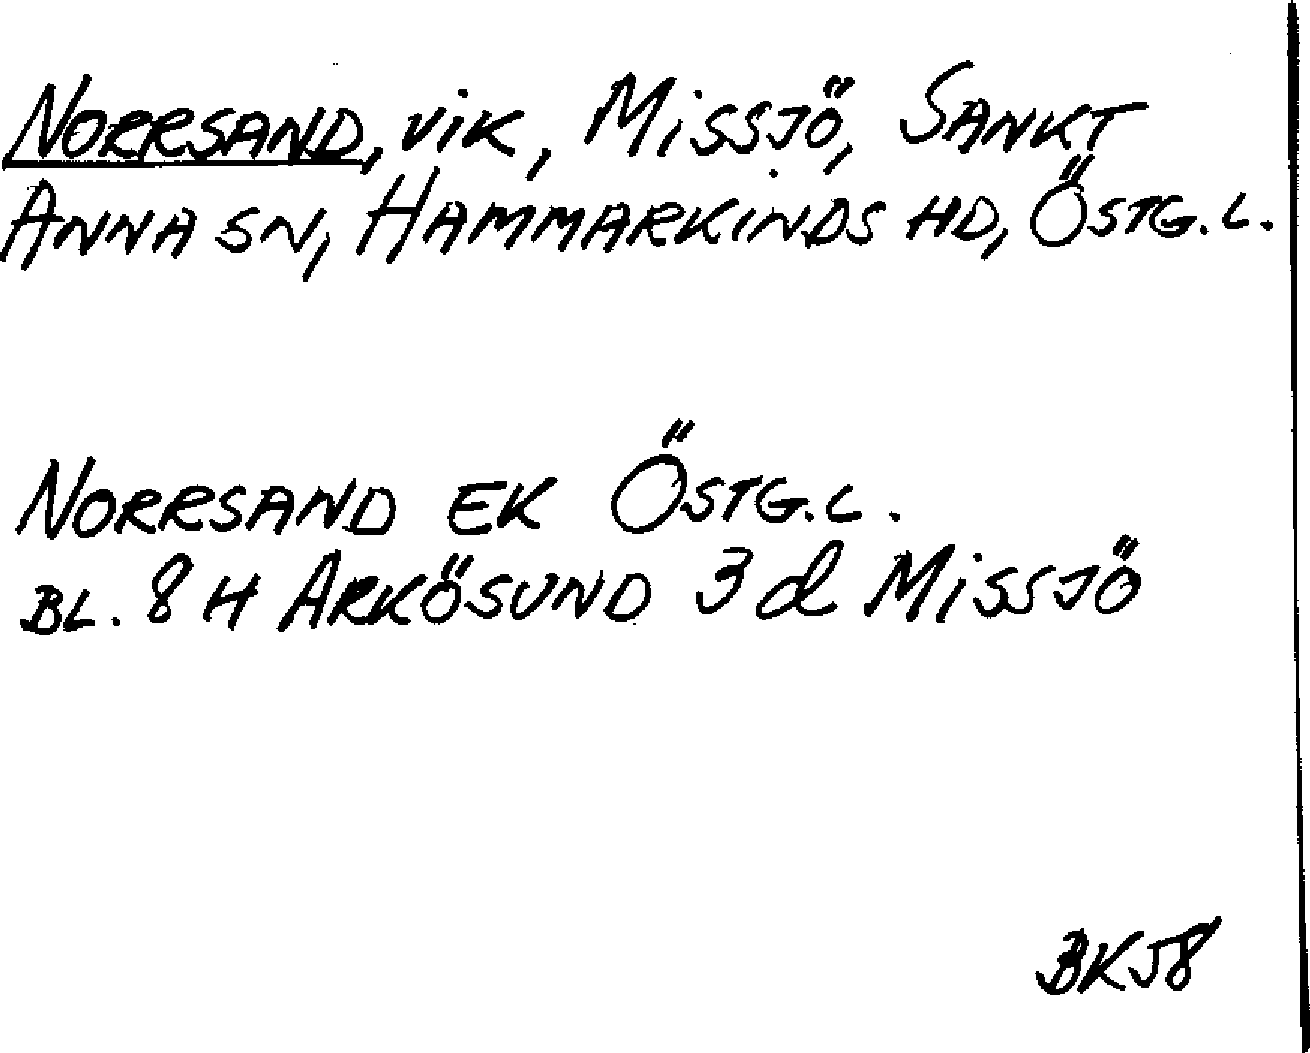 NORRSAND, VIK, MISSJÖ, SANKT
ANNA SN, HAMMARKINDS HD, ÖSTG. L.
NORRSAND EK ÖSTG. L.
BL. 8 H ARKÖSUND 3 d MISSJÖ
BKJ8